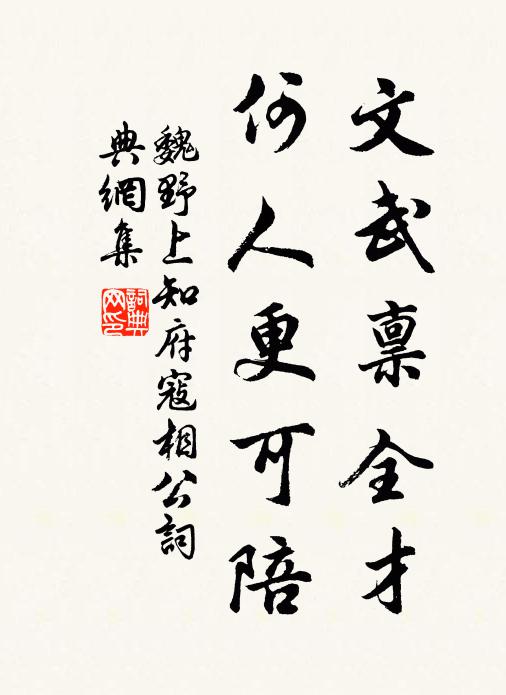 文武禀全才
何人更可陪
魏野上知府寇相公詞
典網集
詞典網印